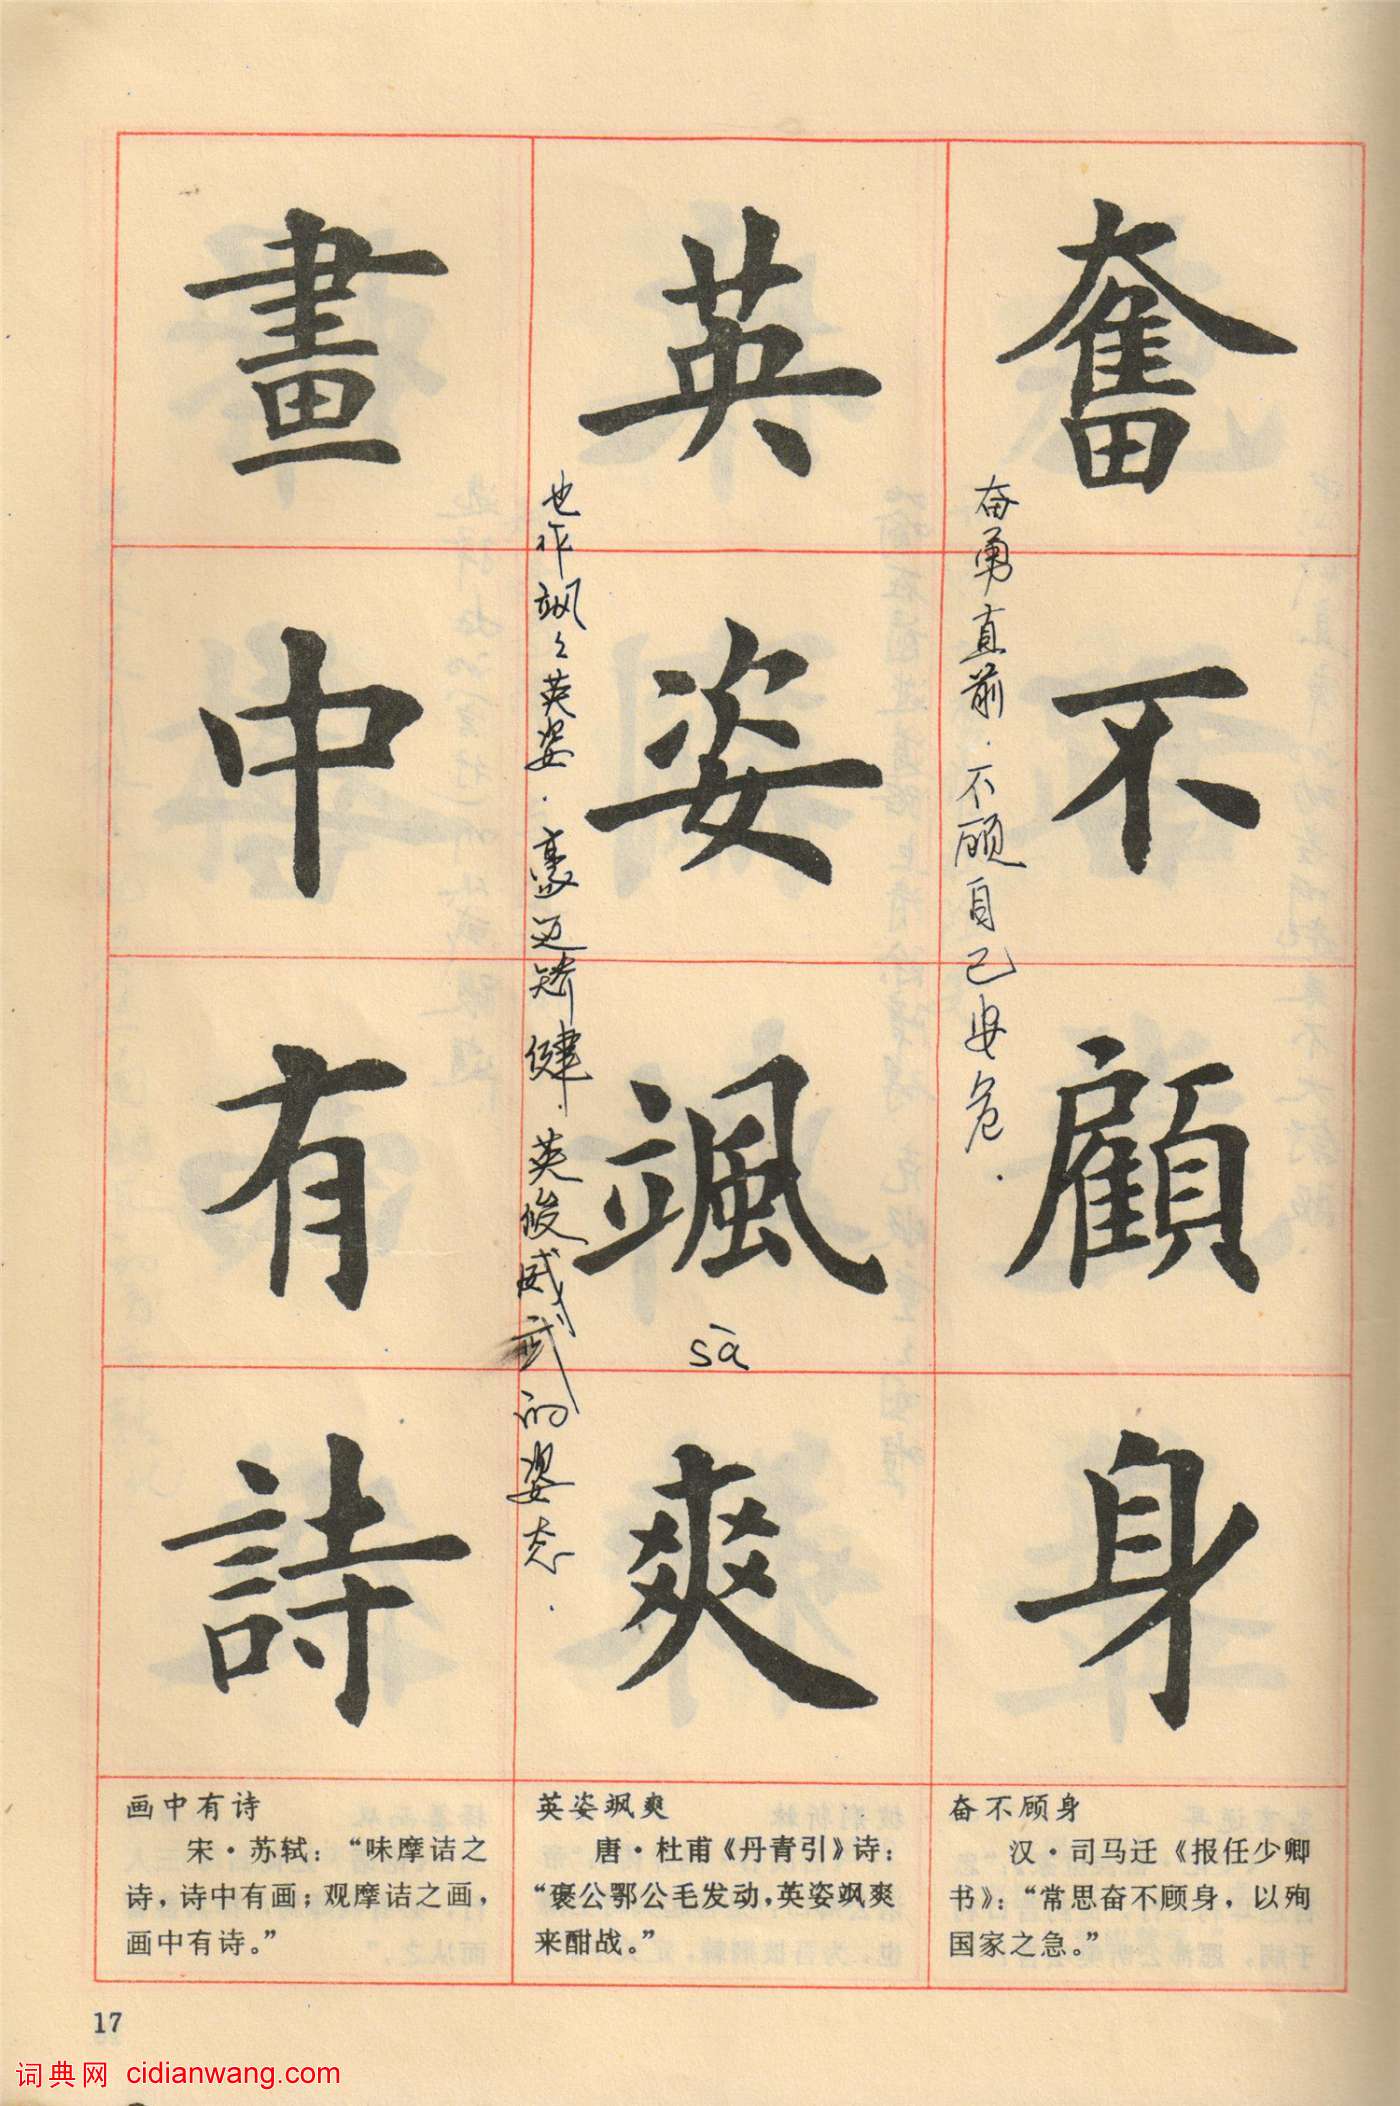 奮不顧身
奋勇直前.不顾自己安危.
英姿颯爽
sà
也作飒々英姿.豪迈矫健.英俊威武的姿态.
畫中有詩
奋不顾身
汉·司马迁《报任少卿
书》：“常思奋不顾身，以殉
国家之急。”
英姿飒爽
唐·杜甫《丹青引》诗：
“褒公鄂公毛发动，英姿飒爽
来酣战。”
画中有诗
宋·苏轼：“味摩诘之
诗，诗中有画；观摩诘之画，
画中有诗。”
17
词典网 cidianwang.com